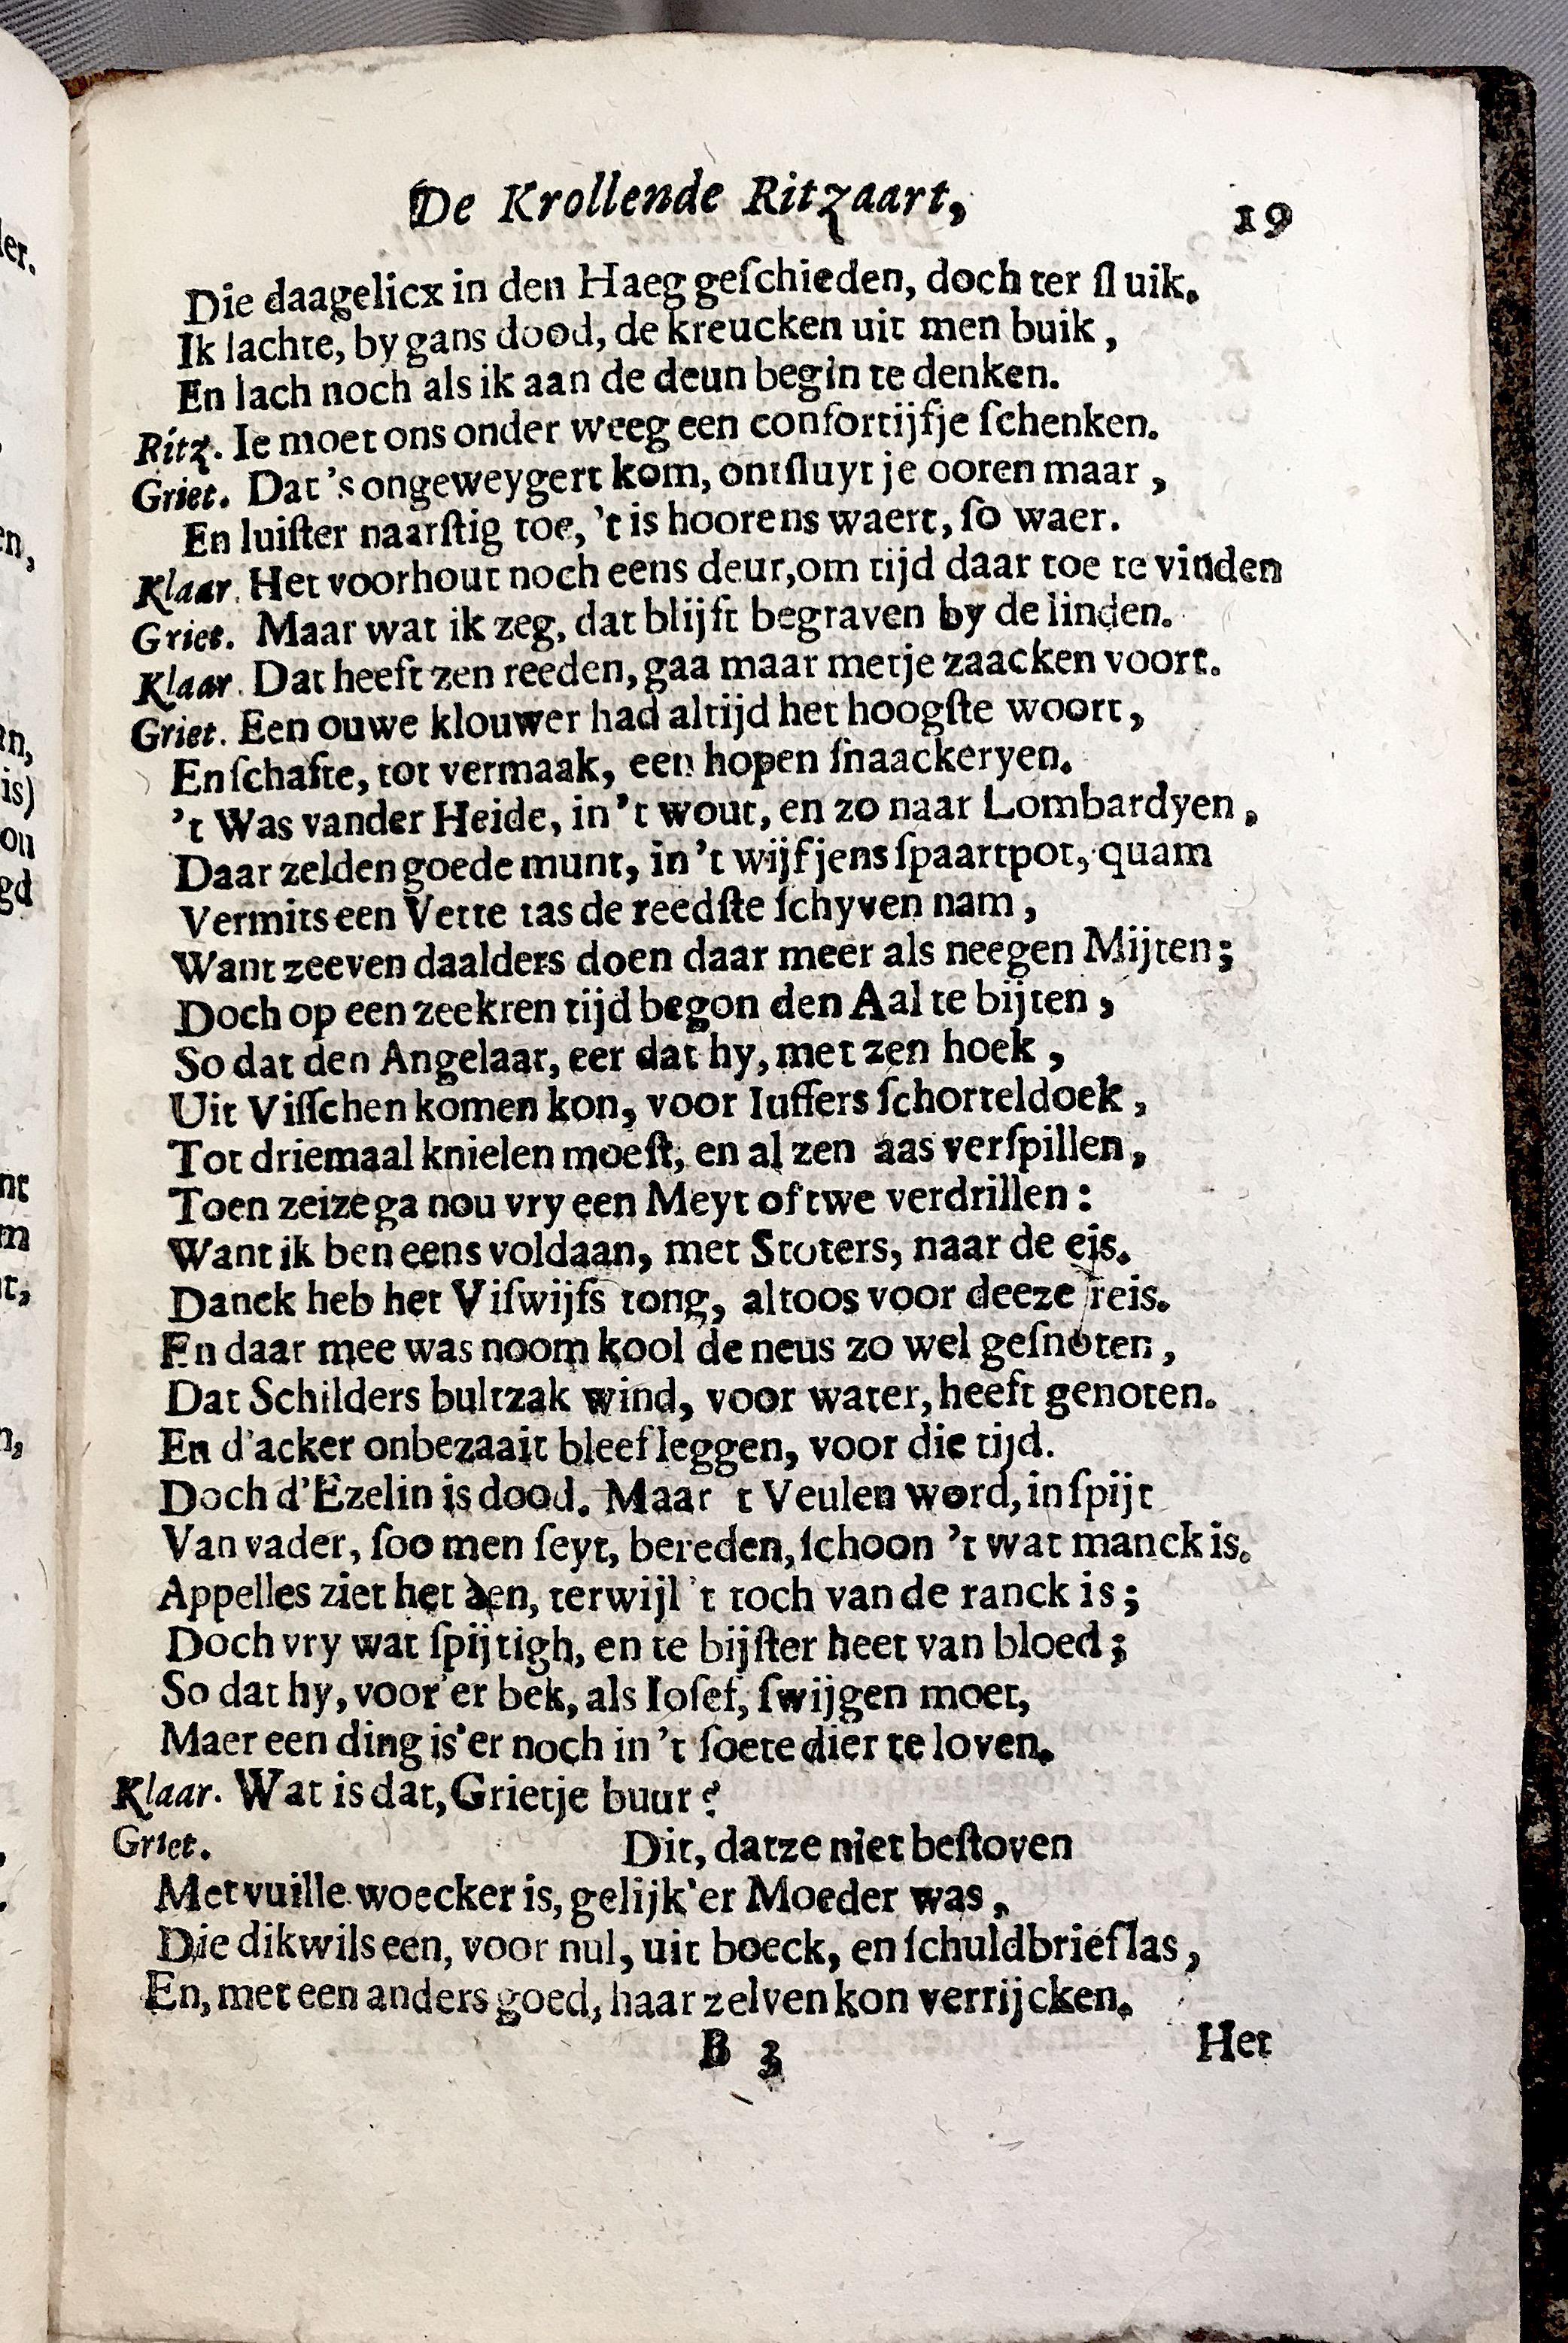 De Krollende Ritzaart, 19
Die daagelicx in den Haeg geſchieden, doch ter ſluik.
Ik lachte, by gans dood, de kreucken uit men buik,
En lach noch als ik aan de deun begin te denken.
Ritz. Ie moet ons onder weeg een confortijfje ſchenken.
Griet. Dat 's ongeweygert kom, ontſluyt je ooren maar,
En luiſter naarſtig toe, 't is hoorens waert, ſo waer.
Klaar. Het voorhout noch eens deur, om tijd daar toe te vinden
Griet. Maar wat ik zeg, dat blijft begraven by de linden.
Klaar. Dat heeft zen reeden, gaa maar met je zaacken voort.
Griet. Een ouwe klouwer had altijd het hoogſte woort,
En ſchafte, tot vermaak, een hopen ſnaackeryen.
't Was vander Heide, in 't wout, en zo naar Lombardyen,
Daar zelden goede munt, in 't wijfjens ſpaartpot, quam
Vermits een Vette tas de reedſte ſchyven nam,
Want zeeven daalders doen daar meer als neegen Mijten;
Doch op een zeekren tijd begon den Aal te bijten,
So dat den Angelaar, eer dat hy, met zen hoek,
Uit Viſſchen komen kon, voor Iuffers ſchorteldoek,
Tot driemaal knielen moeſt, en al zen aas verſpillen,
Toen zeize ga nou vry een Meyt of twe verdrillen:
Want ik ben eens voldaan, met Stoters, naar de eis.
Danck heb het Viſwijfs tong, altoos voor deeze reis.
En daar mee was noom kool de neus zo wel geſnoten,
Dat Schilders bultzak wind, voor water, heeft genoten.
En d'acker onbezaait bleef leggen, voor die tijd.
Doch d'Ezelin is dood. Maar t Veulen word, in ſpijt
Van vader, ſoo men ſeyt, bereden, ſchoon 't wat manck is.
Appelles ziet het aen, terwijl 't toch van de ranck is;
Doch vry wat ſpijtigh, en te bijſter heet van bloed;
So dat hy, voor'er bek, als Ioſef, ſwijgen moet,
Maer een ding is'er noch in 't ſoete dier te loven.
Klaar. Wat is dat, Grietje buur?
Griet. Dit, datze niet beſtoven
Met vuille woecker is, gelijk'er Moeder was,
Die dikwils een, voor nul, uit boeck, en ſchuldbrief las,
En, met een anders goed, haar zelven kon verrijcken.
B 3 Het